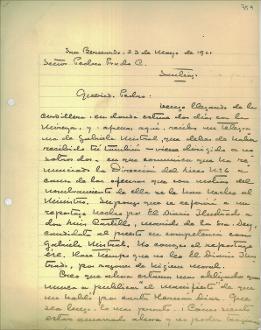 759
San Bernardo, 23 de Mayo de 1921
Señor Pedro Prado C.
Santiago
Querido Pedro:
Vengo llegando de la
cordillera, en donde estuve dos días, con la
y apenas aquí, recibo un telegra-
ma de Gabriela Mistral, que debes de haber
recibido tú también - viene dirigido a no-
sotros dos - en que comunica que ha re-
nunciado la Dirección del Liceo Nº 6 a
causa de los ataques que con motivo del
nombramiento de ella se le han hecho al
Ministro. Supongo que se referirá a un
reportaje hecho por El Diario Ilustrado a
candidata al puesto en competencia con
Gabriela Mistral. No conozco el reportaje
ese. Hace tiempo que no leo El Diario Ilus-
trado, por razones de higiene moral.
Creo que ahora estamos más obligados que
nunca a publicar el manifiesto de que
me habló por carta hace días. Que
sea luego.